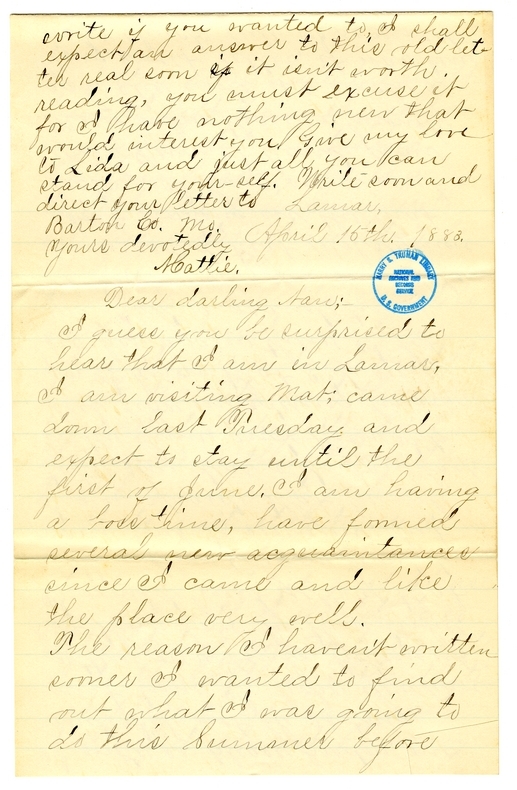 write if you wanted to I shall
expect an answer to this old let-
ter real soon if it isn't worth
reading, you must excuse it
for I have nothing new that
would interest you Give my love
to Lida and just all you can
stand for your-self. Write soon and
direct your letter to Lamar,
Barton Co. Mo.
April 15th. 1883.
Yours devotedly
Mattie.
HARRY S. TRUMAN LIBRARY
NATIONAL
ARCHIVES AND
RECORDS
SERVICE
U. S. GOVERNMENT
Dear darling Nan;-
I guess you be surprised to
hear that I am in Lamar,
I am visiting Mat; came
down last Tuesday and
expect to stay until the
first of June. I am having
a boss time, have formed
several new acquaintances
since I came and like
the place very well.
The reason I haven't written
sooner I wanted to find
out what I was going to
do this Summer before